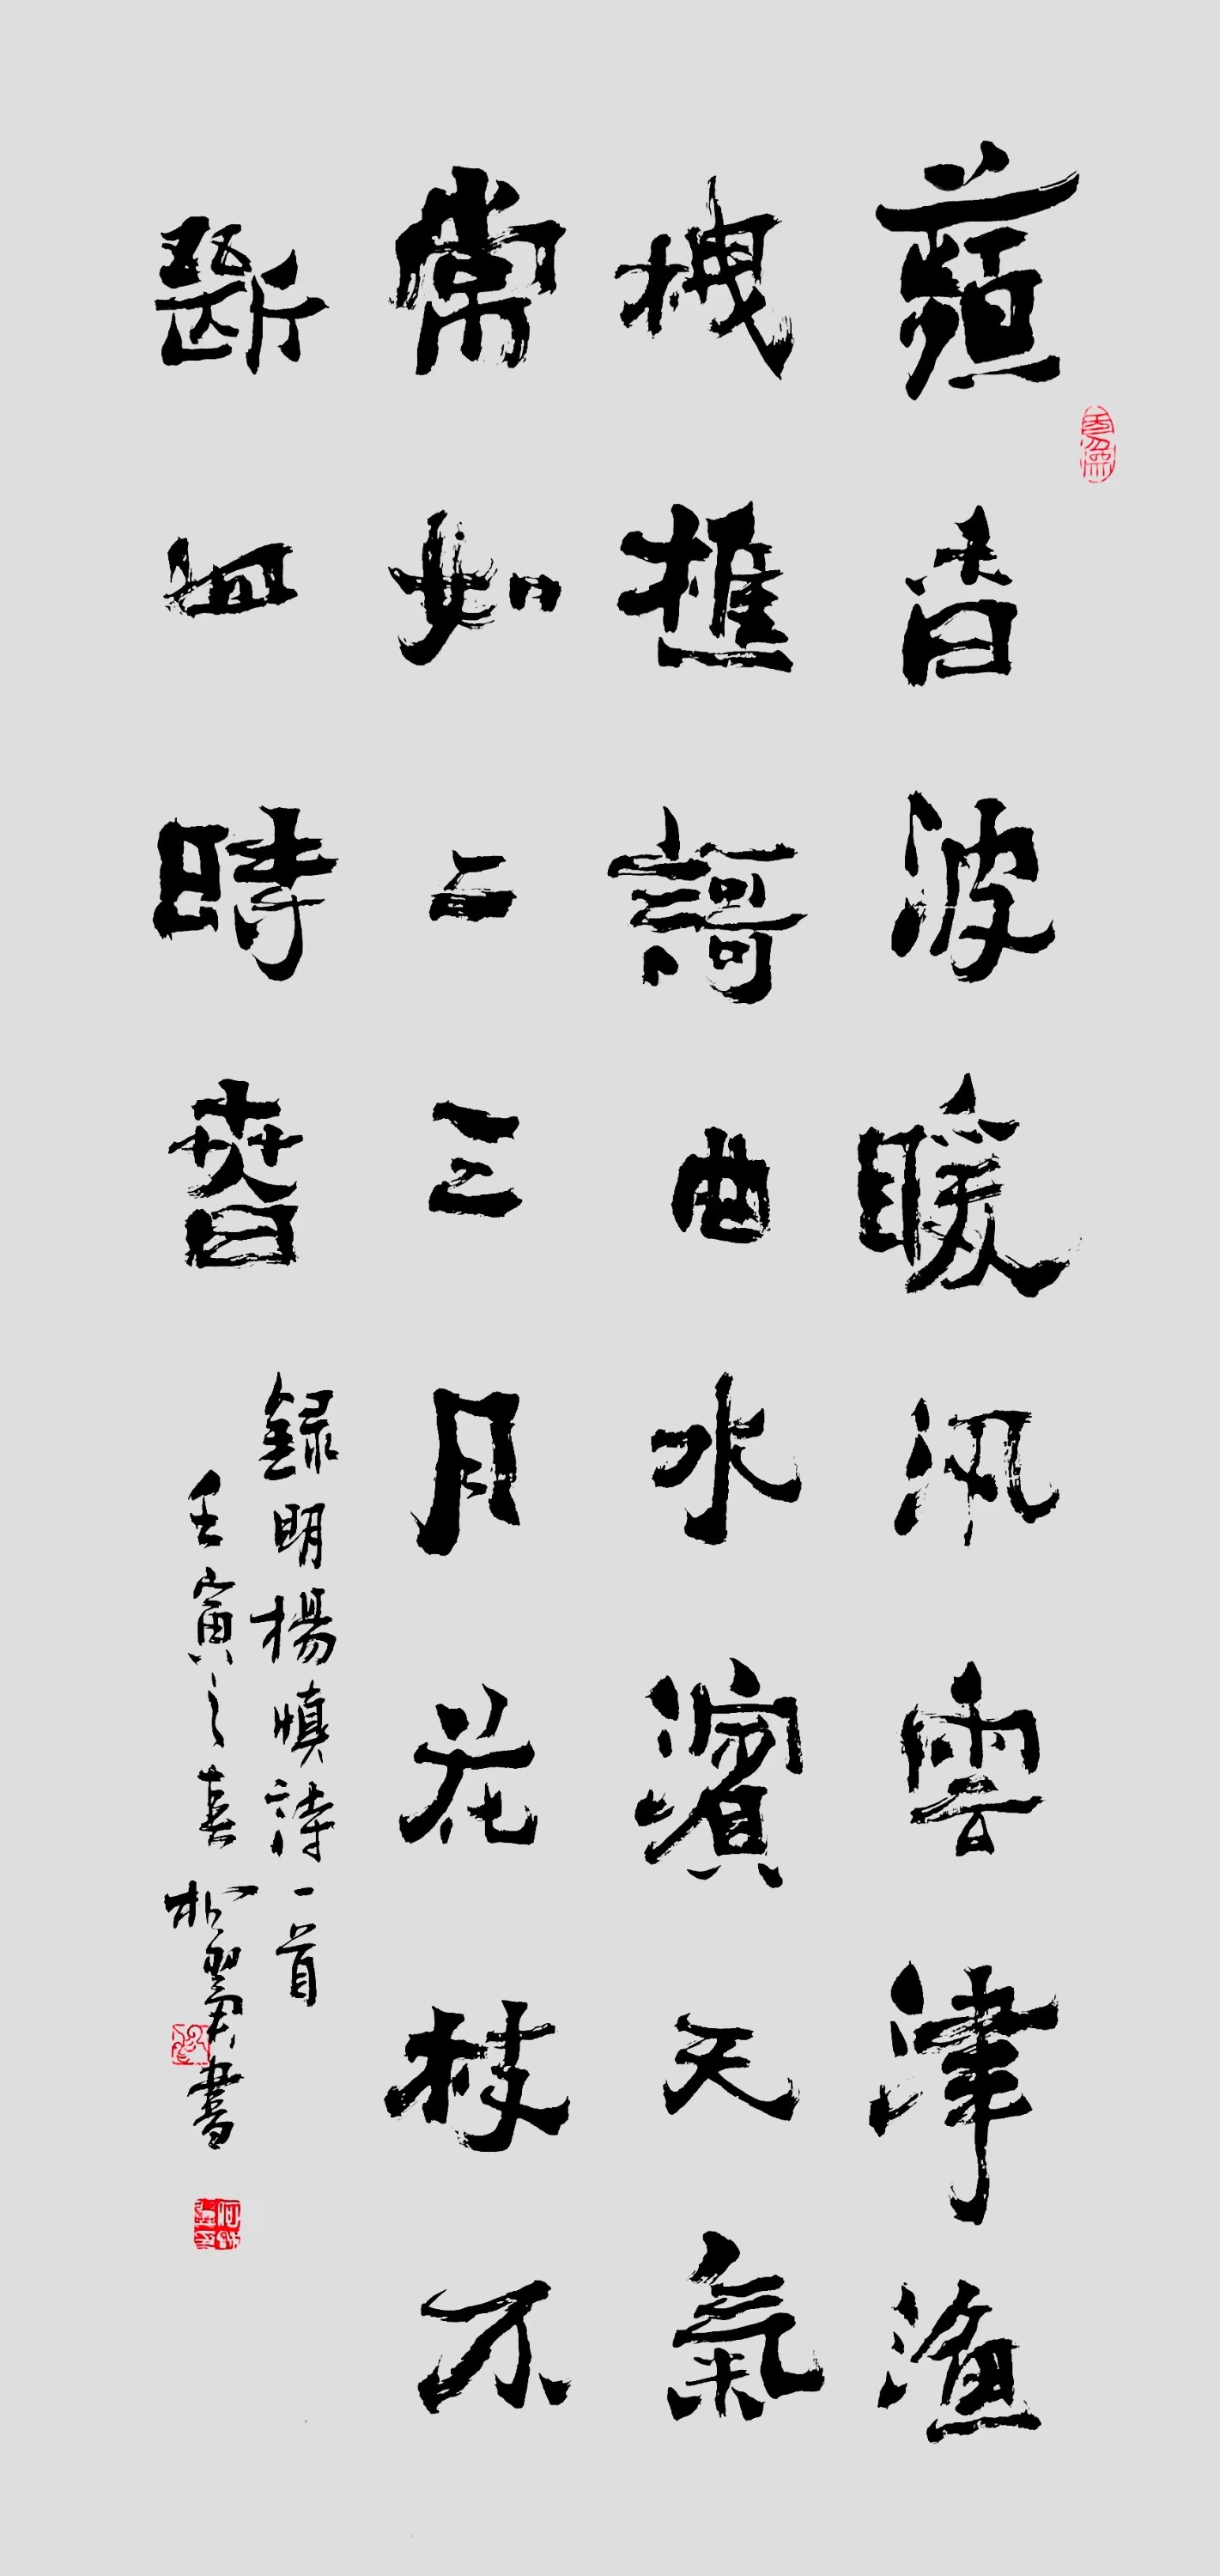 蘋香波暖汎雲津漁
枻樵謌曲水濱天氣
常如二三月花枝不
斷四時春
録明楊慎詩一首
壬寅之春
書